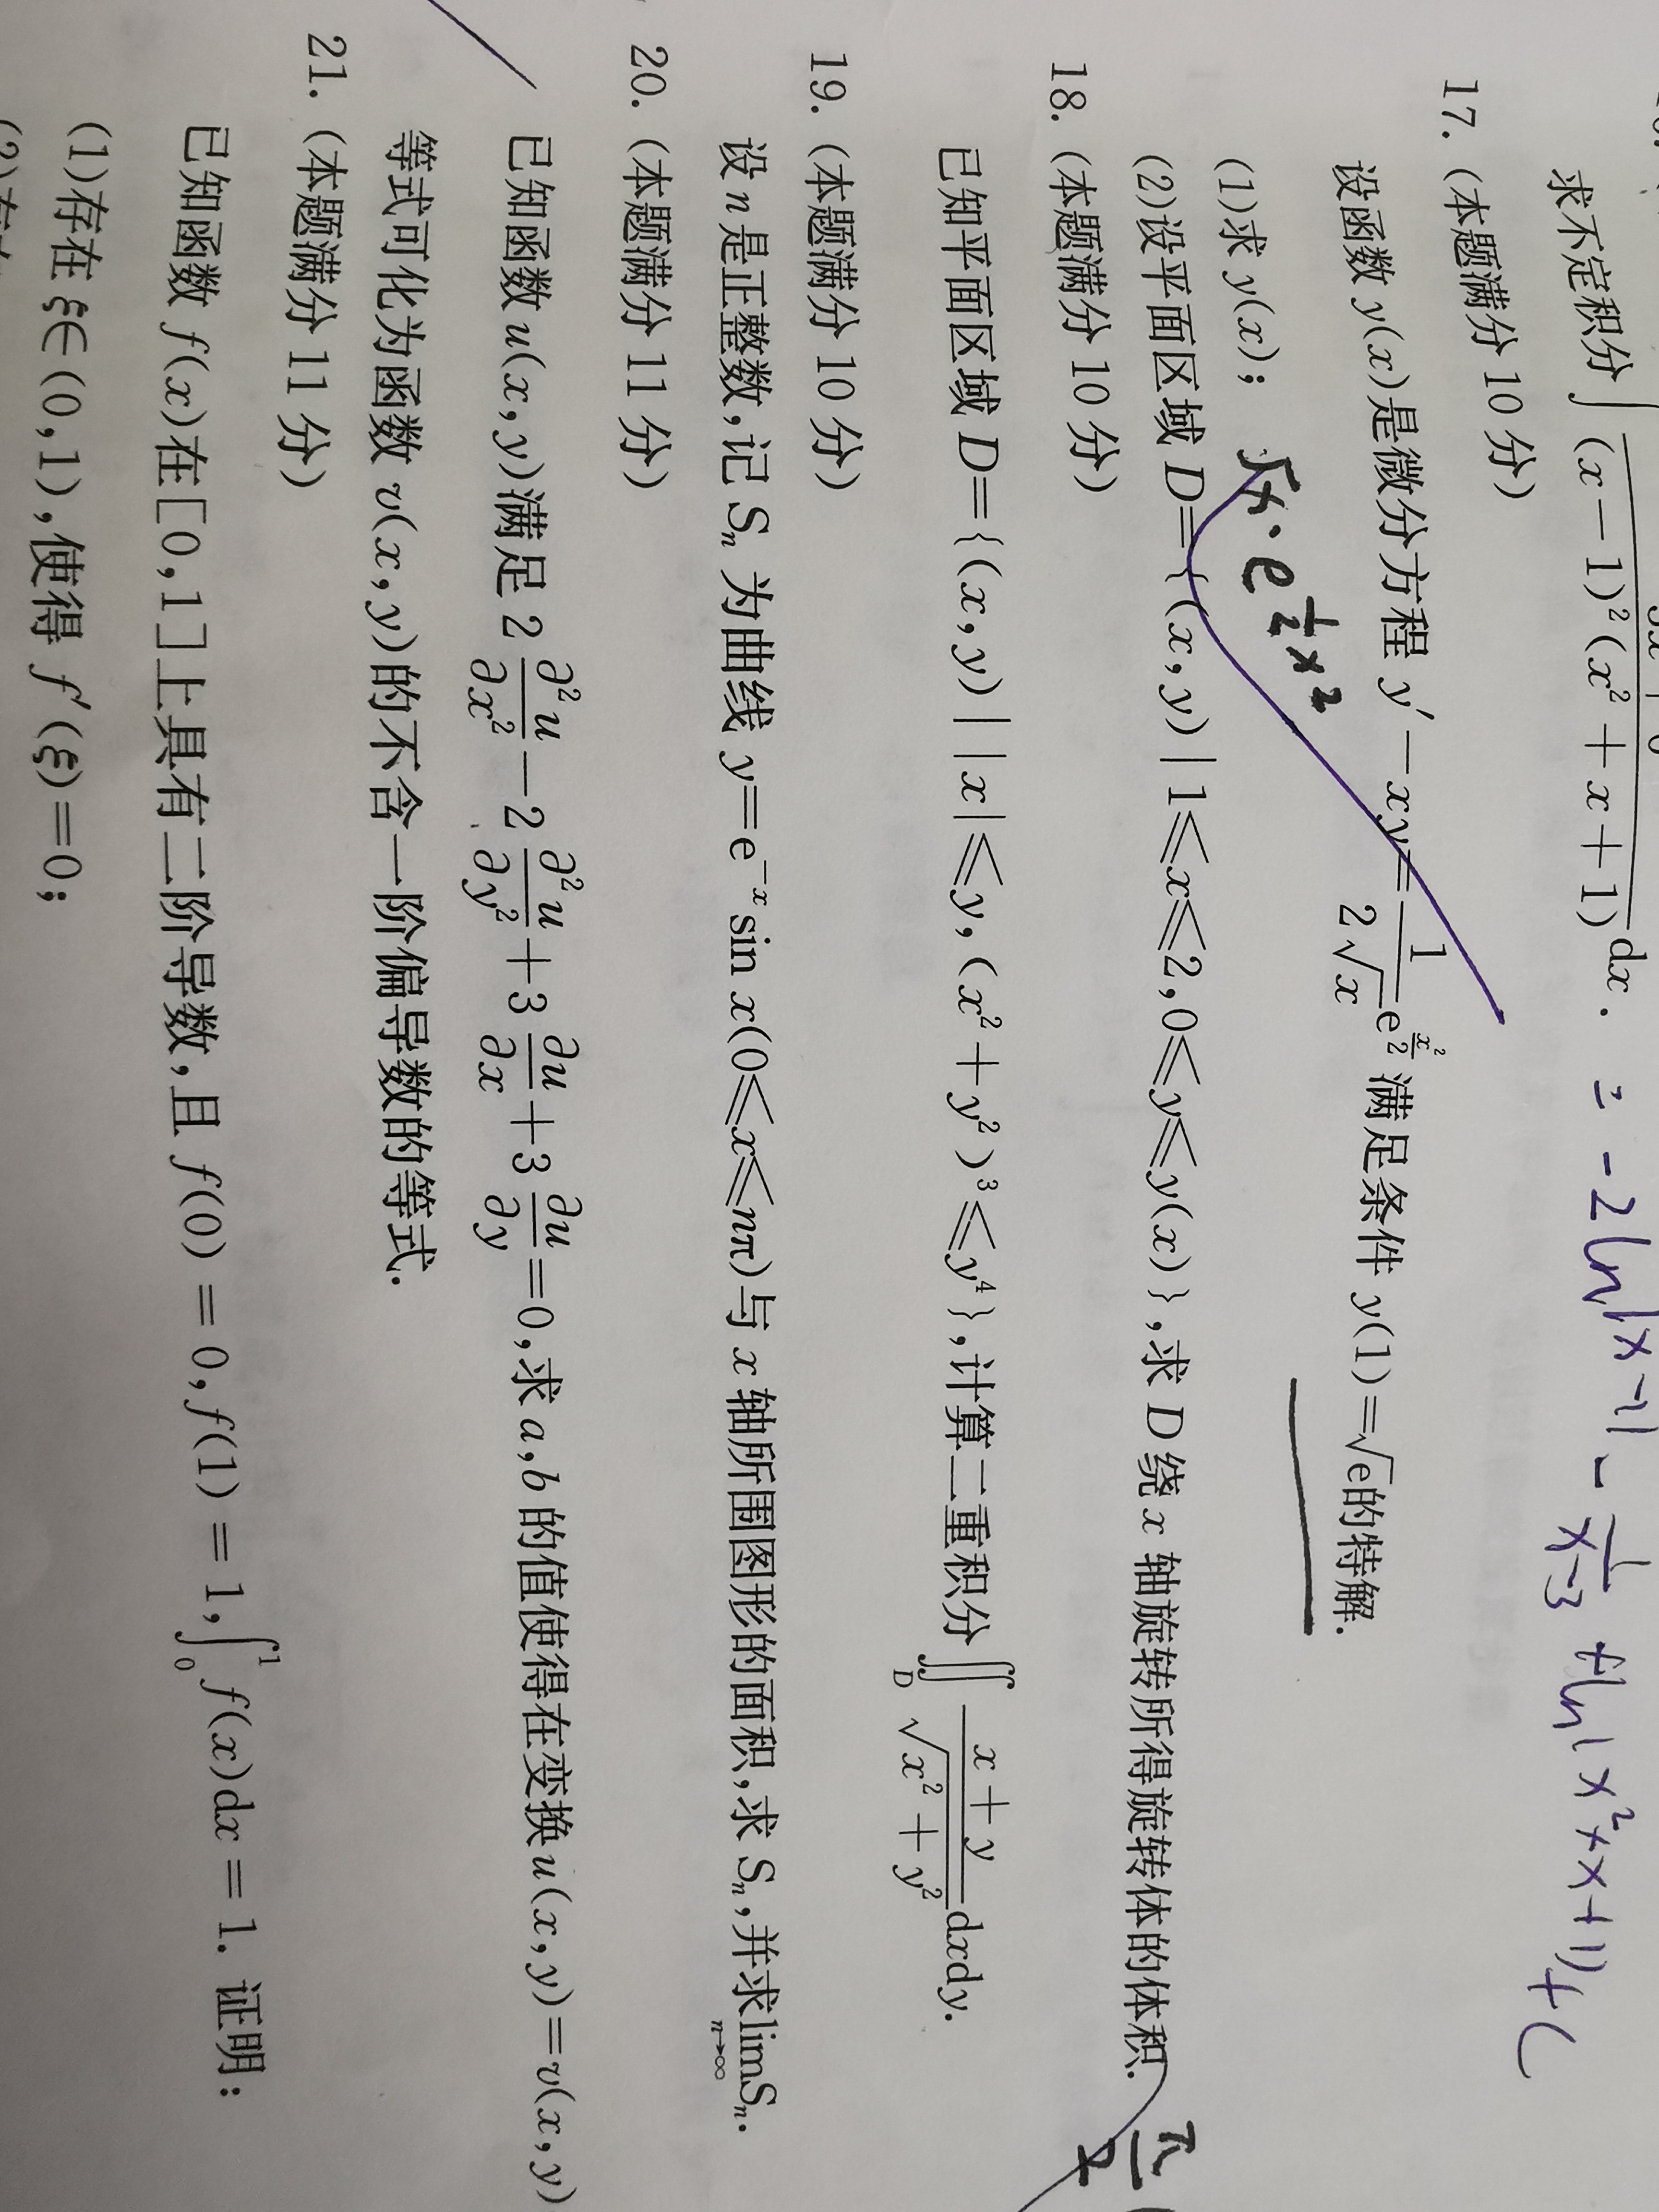 求不定积分∫ (x-1)²(x²+x+1) dx. = -2ln|x-1| - 1/(x-3) + ln(x²+x+1)+C
17. (本题满分10分)
设函数 y(x)是微分方程 y′-xy= 1/(2√x) e^(x²/2) 满足条件 y(1)=√e的特解.
(1)求 y(x); √x·e^(½x²)
(2)设平面区域 D={(x,y)|1≤x≤2,0≤y≤y(x)},求 D 绕 x 轴旋转所得旋转体的体积. π/2 (
18. (本题满分10分)
已知平面区域 D={(x,y)||x|≤y,(x²+y²)³≤y⁴},计算二重积分∬_D (x+y)/√(x²+y²) dxdy.
19. (本题满分10分)
设 n 是正整数,记 Sₙ 为曲线 y=e⁻ˣsin x(0≤x≤nπ)与 x 轴所围图形的面积,求 Sₙ,并求lim_(n→∞) Sₙ.
20. (本题满分11分)
已知函数 u(x,y)满足 2 ∂²u/∂x² -2 ∂²u/∂y² +3 ∂u/∂x +3 ∂u/∂y =0,求 a,b 的值使得在变换u(x,y)=v(x,y)
等式可化为函数 v(x,y)的不含一阶偏导数的等式.
21. (本题满分11分)
已知函数 f(x)在[0,1]上具有二阶导数,且 f(0)=0,f(1)=1,∫₀¹ f(x)dx=1. 证明:
(1)存在 ξ∈(0,1),使得 f′(ξ)=0;